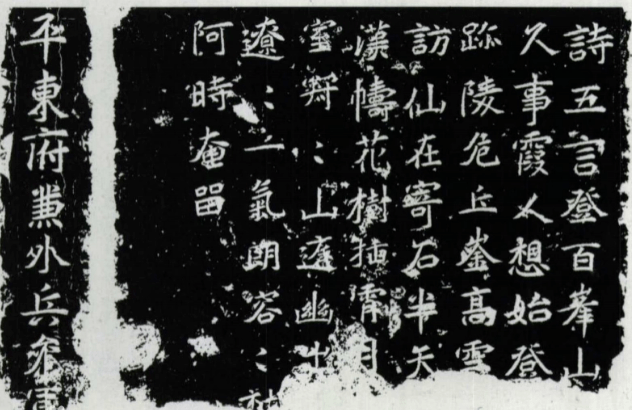 詩五言登百峯山
久事霞人想始登
跡陵危丘崟高雪
訪仙在寄石半天
漢幬花樹插霄月
室
遼：一氣朗容：
阿時奄
平東府兼外兵參軍